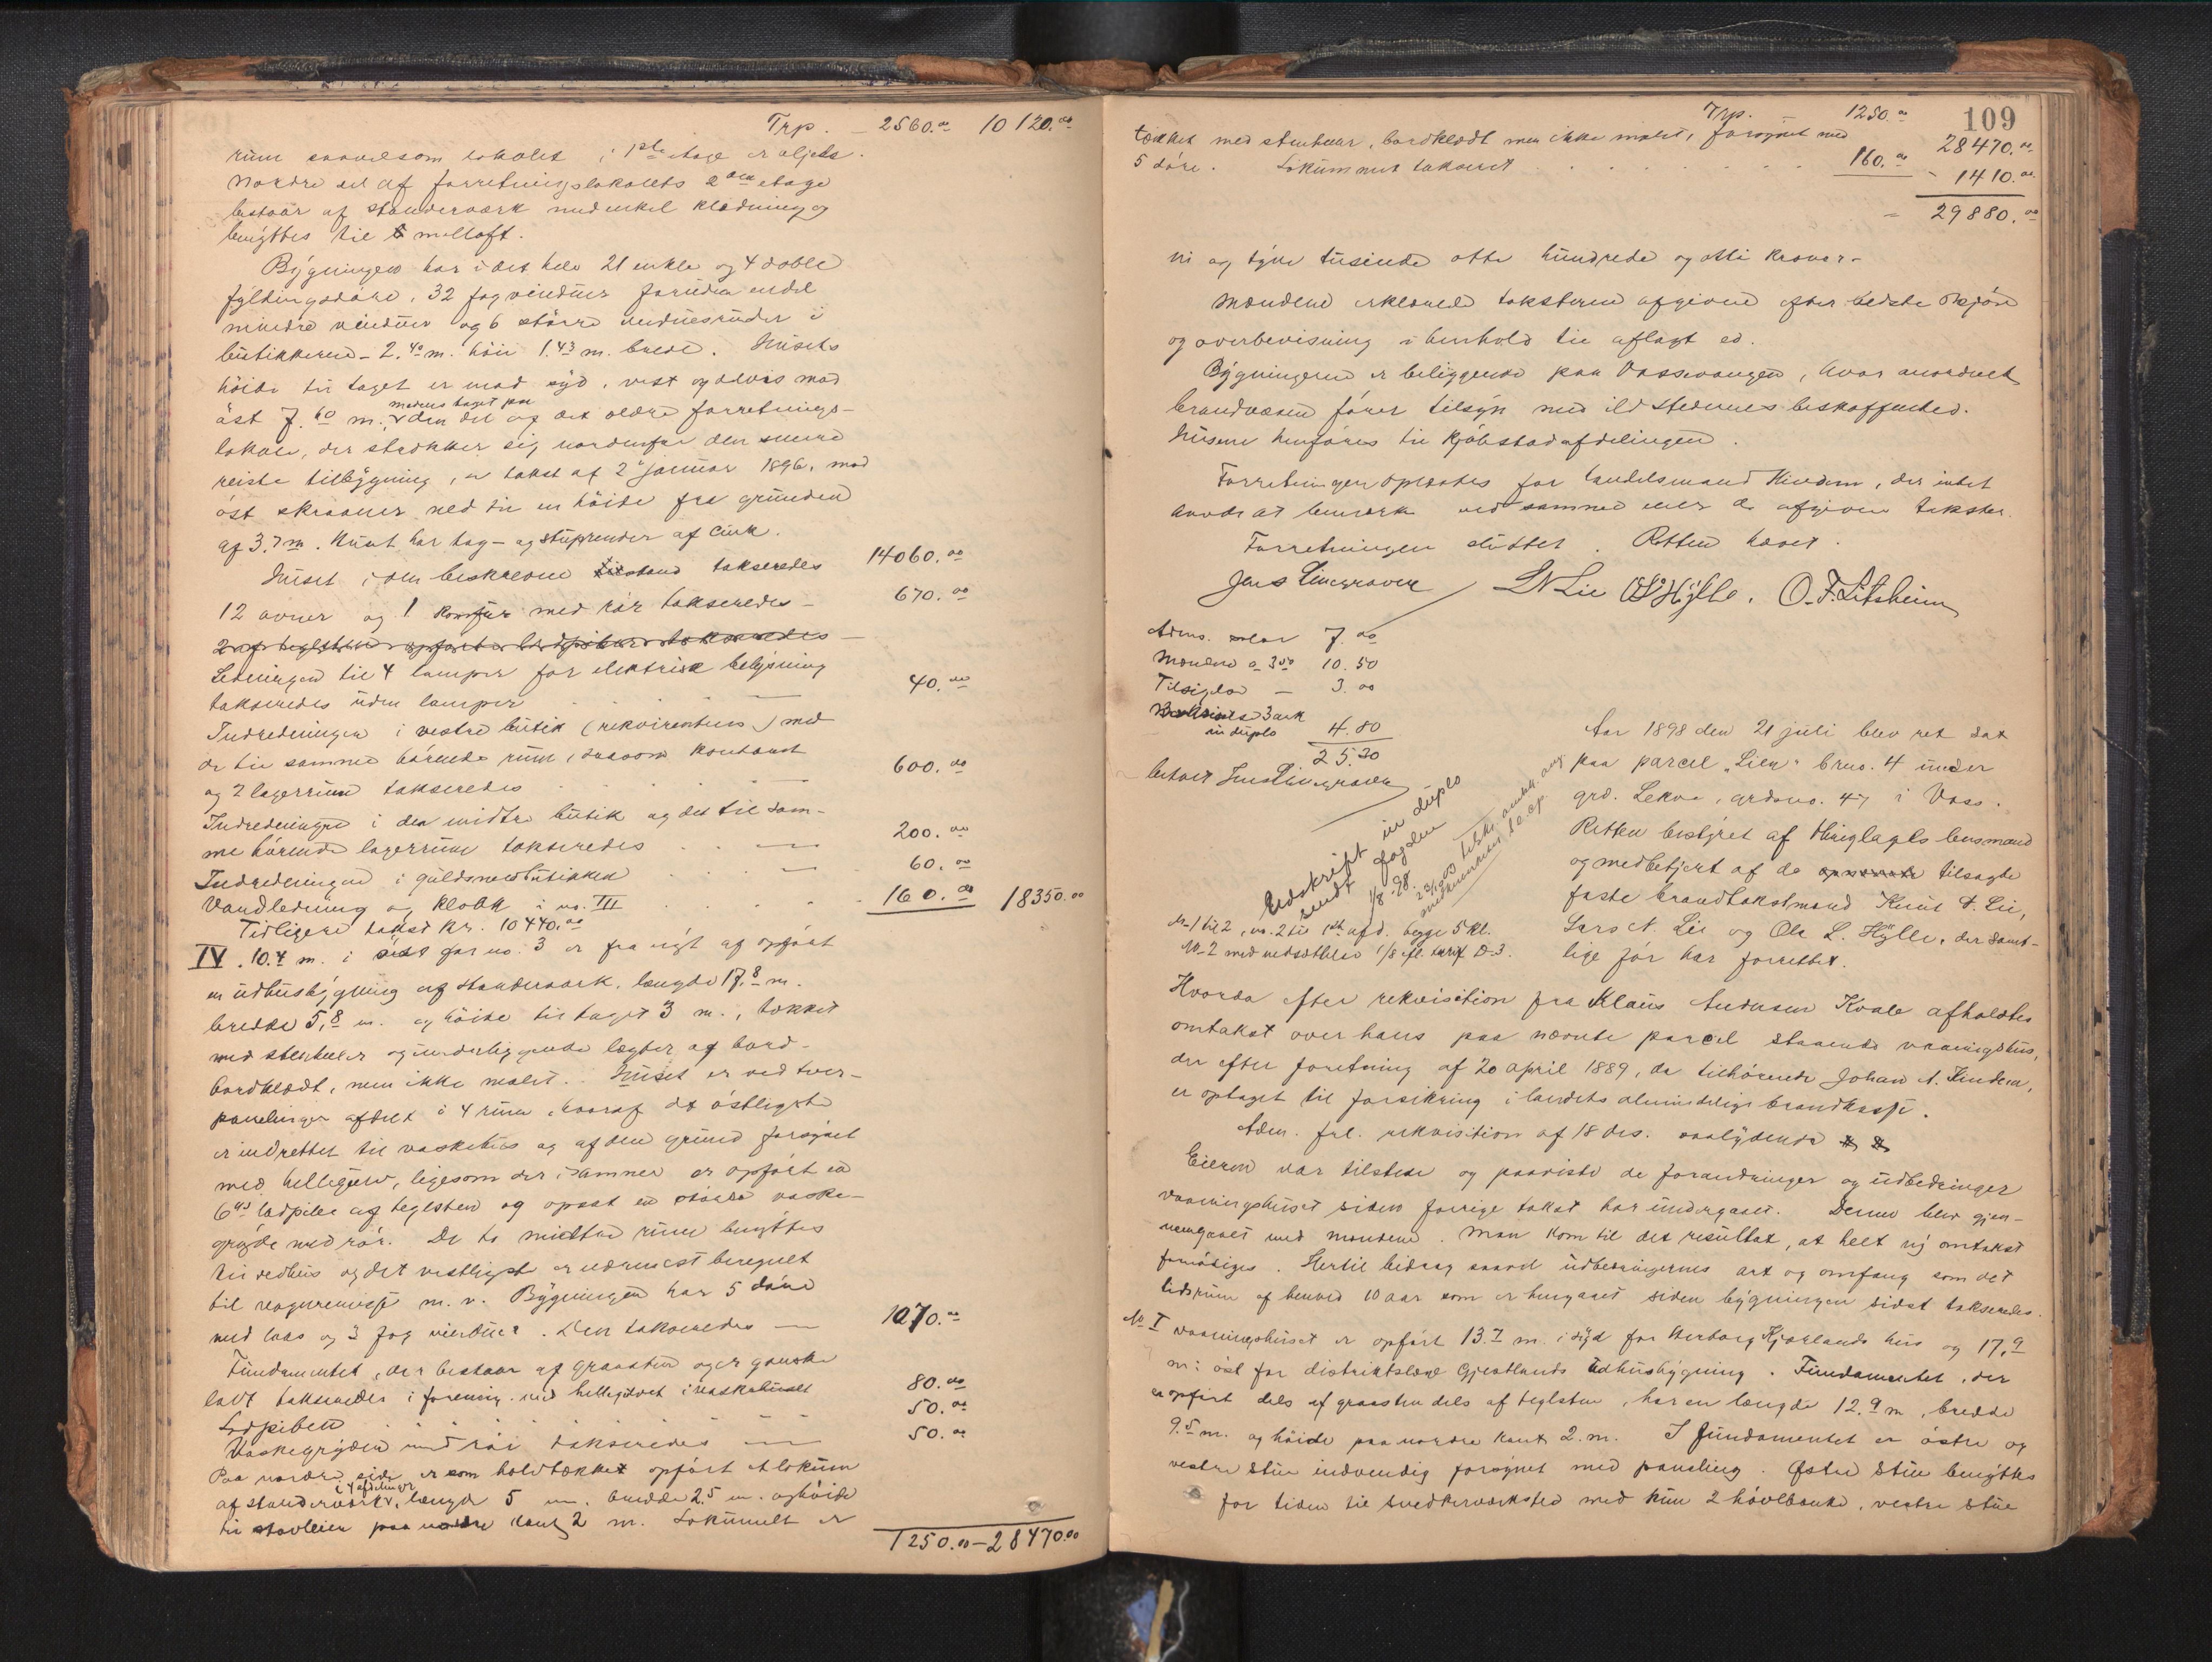 Trp. – 2560.00 10120.00
rum saavelsom lokalet i 1ste etage er oljet.
Nordre del af forretningslokalets 2den etage
bestaar af standerværk med enkel klædning og
benyttes til melloft.
Bygningen har i det hele 21 enkle og 4 doble
fyldingsdøre, 32 fag vinduer foruden endel
mindre vinduer og 6 større vinduesruder i
butikkerne – 2.40 m. høie 1.43 m. brede. Husets
høide til taget er mod syd, vest og delvis mod
øst 7.60 m., medens taget paa den del af det ældre forretnings-
lokale, der strækker sig nordenfor den senere
reiste tilbygning, se takst af 2 januar 1896, mod
øst skraaner ned til en høide fra grunden
af 3.7 m. Huset har tag- og stuprender af zink.
Huset i den beskrevne tilstand takseredes 14060.00
12 ovner og 1 komfur med rør takseredes – 670.00
2 af teglsten opførte ladpiber takseredes –
Ledningen til 4 lamper for elektrisk belysning
takseredes uden lamper – 40.00
Indredningen i vestre butik (rekvirentens) med
de til samme hørende rum, saasom kontoret
og 2 lagerrum takseredes – 600.00
Indredningen i den midtre butik og det til sam-
me hørende lagerrum takseredes – 200.00
Indredningen i guldsmedbutikken – 60.00
Vandledning og klosk i no. III – 160.00 18350.00
Tidligere takst kr. 10440.00
IV. 10.4 m. i øst for no. 3 er fra nyt af opført
en udhusbygning af standerværk, længde 17.8 m.
bredde 5.8 m. og høide til taget 3 m., tækket
med stenheller og underliggende lægter og bord-
bordklædt, men ikke malet. Huset er ved tver-
panelinger afdelt i 4 rum, hvoraf det østligste
er indrettet til vaskehus og af den grund forsynet
med hellegulv, ligesom der i samme er opført en
6" ladpibe af teglsten og opsat en større vaske-
gryde med rør. De to midtre rum benyttes
til vedhus og det vestligste er nærmest beregnet
til vognremisse m. v. Bygningen har 5 døre
med laas og 3 fag vinduer. Den takseredes – 1070.00
Fundamentet, der bestaar af graasten og er ganske
lavt takseredes i forening med hellegulvet i vaskehuset 80.00
Ladpiben 50.00
Vaskegryden med rør takseredes – 50.00
Paa nordre side er som halvtækket opført et lokum
af standerværk i 4 afdelinger, længde 5 m. bredde 2.5 m. og høide
til stavleien paa nordre kant 2 m. Lokumet er
1250.00 – 28470.00
109
Trp. – 1250.00 28470.00
tækket med stenheller, bordklædt men ikke malet, forsynet med
5 døre. Lokummet takseret 160.00 – 1410.00
= 29880.00
ni og tyve tusinde otte hundrede og otti kroner –
Mændene erklærede taksterne afgivne efter bedste skjøn
og overbevisning i henhold til aflagt ed.
Bygningerne er beliggende paa Vossevangen, hvor anordnet
brandvæsen fører tilsyn med ildstedernes beskaffenhed.
Husene henføres til kjøbstadafdelingen.
Forretningen oplæstes for handelsmand Hindem, der intet
havde at bemærke ved samme eller de afgivne takster.
Forretningen sluttet. Retten hævet.
Jens Lindgraven L N Lie O L Hylle. O. F. Litsheim
Adms. selv 7.00
Mændene a 3.50 10.50
Tilsigelse – 3.00
3 ark
in duplo 4.80
25.30
betalt Jens Lindgraven
Udskrift in duplo
sendt fogden
1/8-98.
Aar 1898 den 21 juli blev ret sat
paa parcel „Lien" brno. 4 under
grd. Lekve, grdsno. 47 i Voss.
Retten bestyret af thinglagets lensmand
og medbetjent af de tilsagte
faste brandtakstmænd Knut T. Lie,
Lars N. Lie og Ole L. Hylle, der samt-
lige før har forrettet.
No 1 til 2, no. 2 til 1ste afd. begge 5 kl.
No 2 med nedsættelse 1/8 efl. tarif D-3.
Hvorda efter rekvisition fra Klaus Andersen Kvale afholdtes
omtakst over hans paa nævnte parcel staaende vaaningshus,
der efter forretning af 20 april 1889, da tilhørende Johan A. Hindem,
er optaget til forsikring i landets almindelige brandkasse.
Adm. frl. rekvisition af 18 ds. saalydende
Eieren var tilstede og paaviste de forandringer og udbedringer
vaaningshuset siden forrige takst har undergaaet. Denne blev gjen-
nemgaaet med mændene. Man kom til det resultat, at helt ny omtakst
fornødiges. Hertil bidrog saavel udbedringernes art og omfang som det
tidsrum af henved 10 aar som er hengaaet siden bygningen sidst takseredes.
No I Vaaningshuset er opført 13.7 m. i syd for Herborg Kjørlands hus og 17.9
m. i øst for distriktslæge Gjestlands udhusbygning. Fundamentet, der
er opført dels af graasten dels af teglsten, har en længde 12.9 m, bredde
9.5 m. og høide paa nordre kant 2. m. I fundamentet er østre og
vestre stue indvendig forsynet med paneling. Østre stue benyttes
for tiden til snedkerværksted med kun 2 høvlbænke, vestre stue